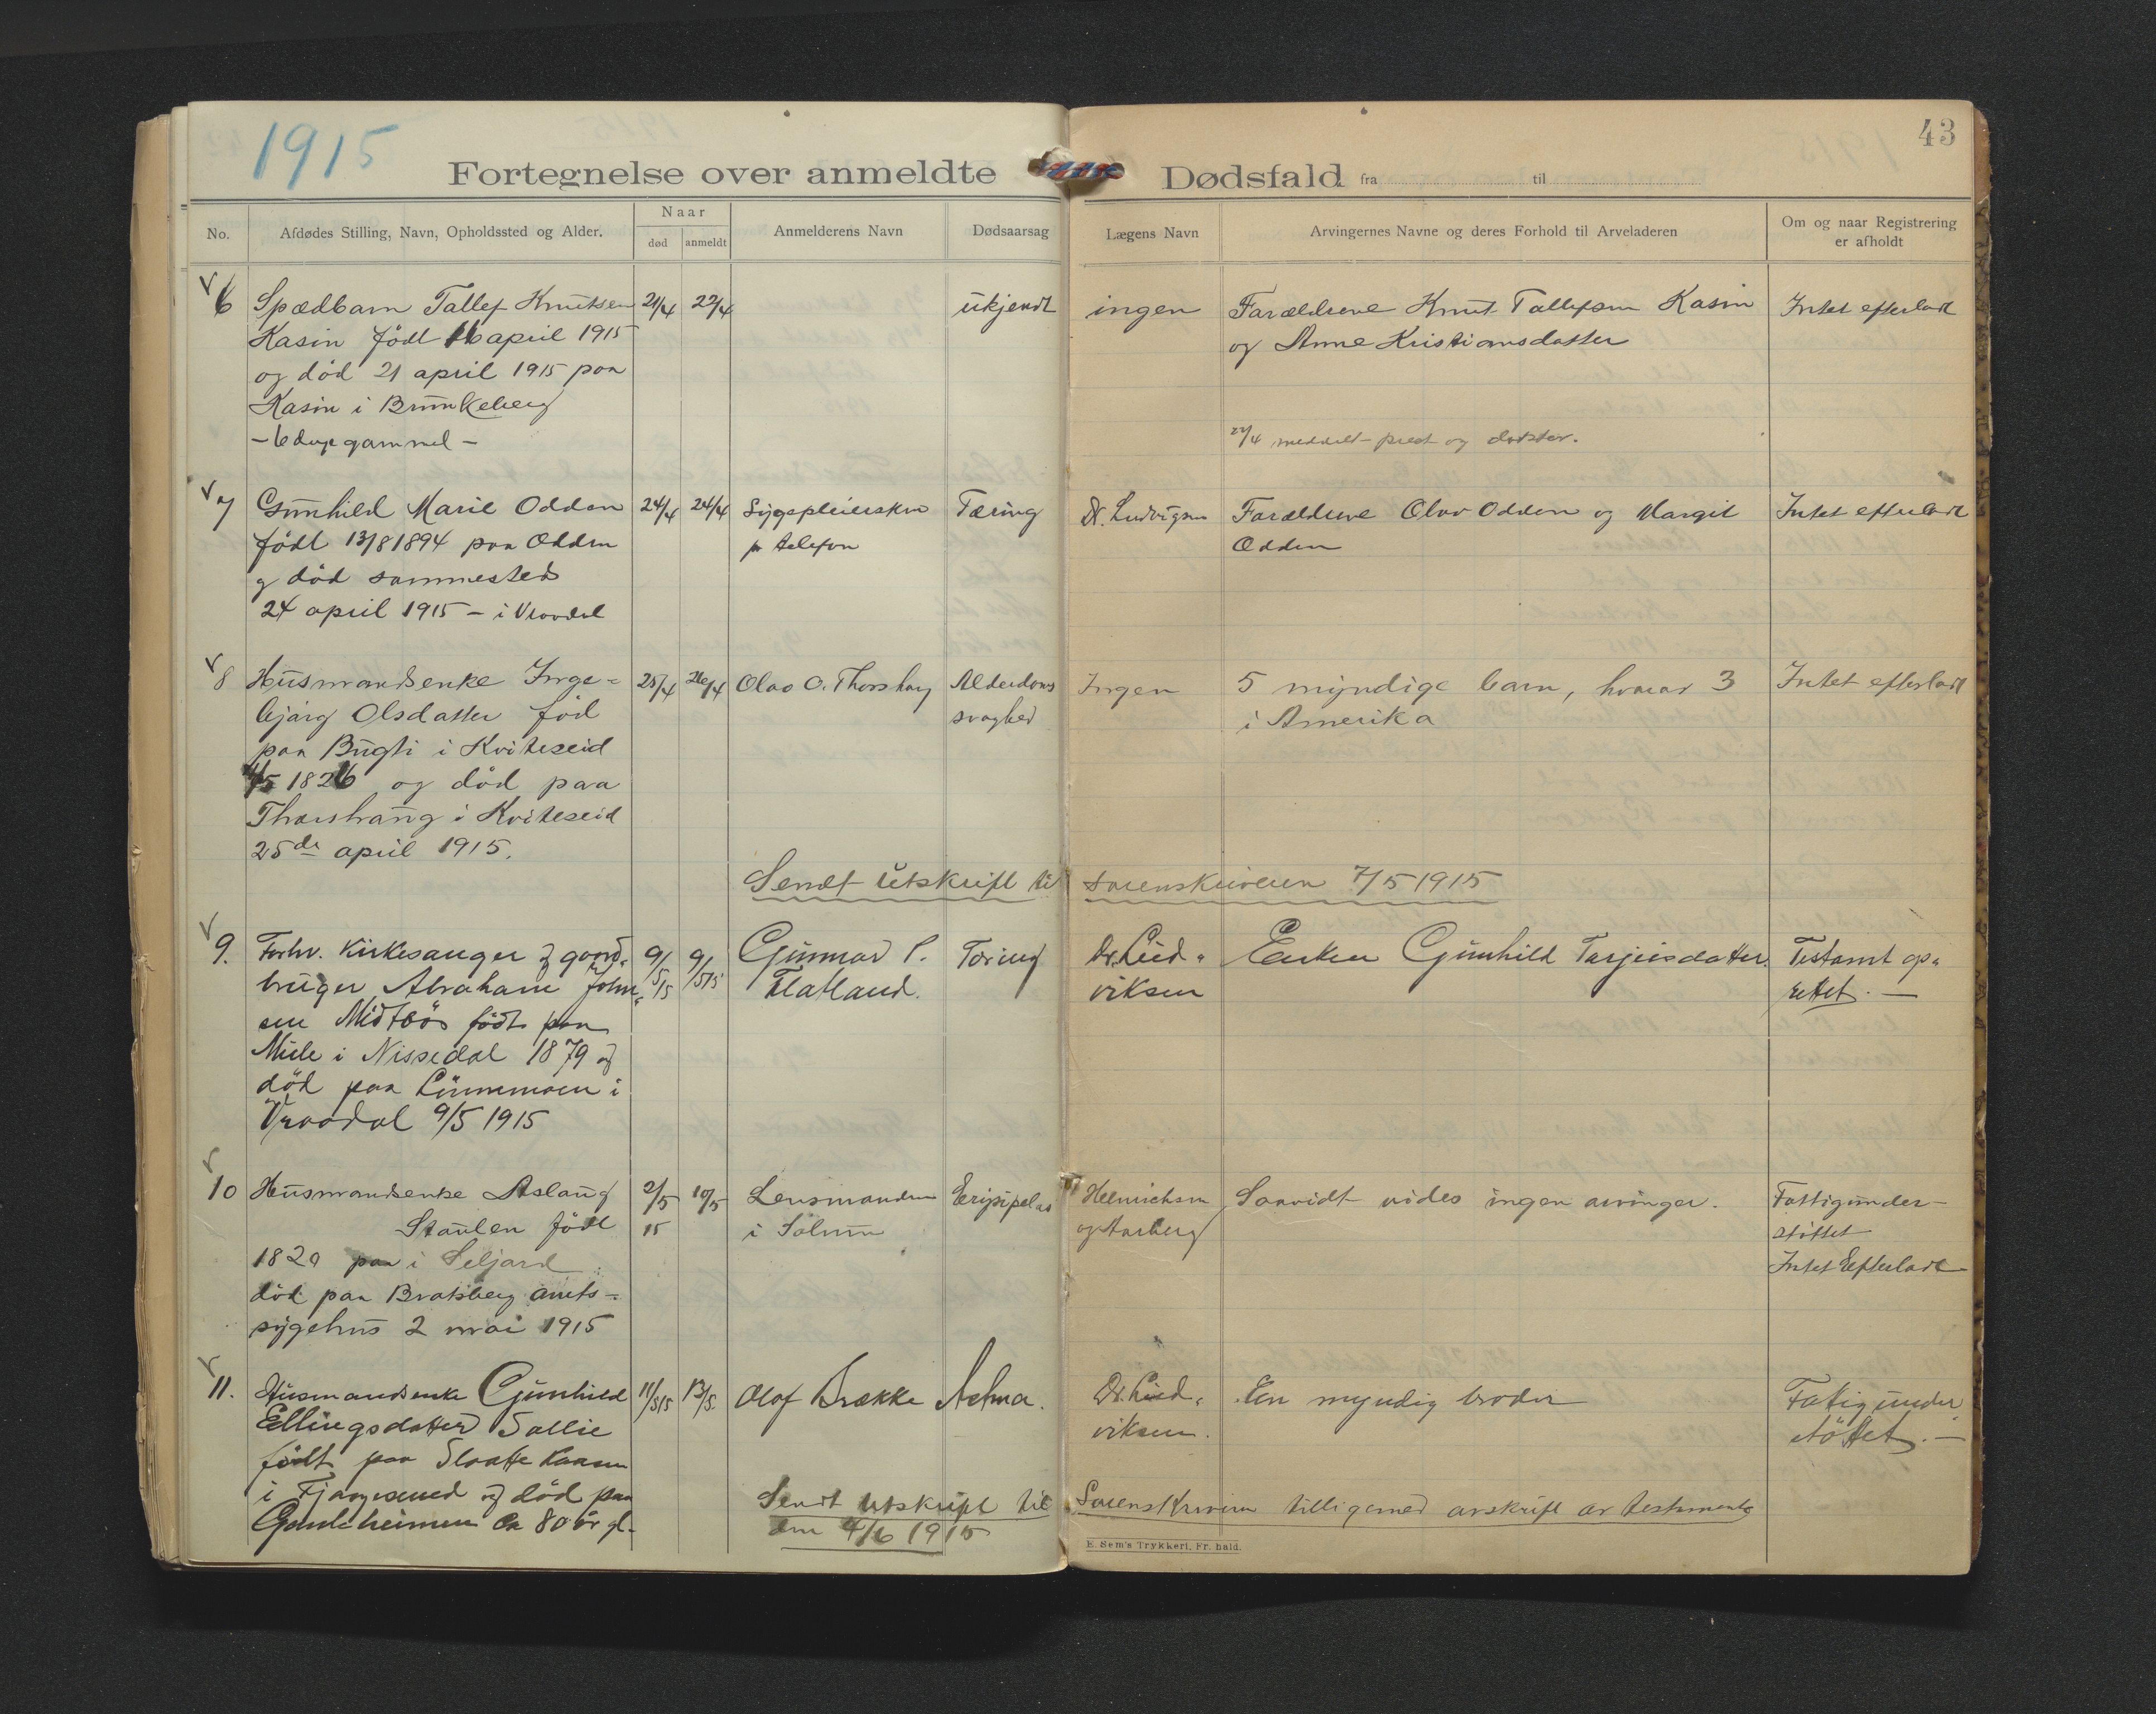 1915
43
Fortegnelse over anmeldte Dødsfald fra til
No.
Afdødes Stilling, Navn, Opholdssted og Alder.
Naar
død
anmeldt
Anmelderens Navn
Dødsaarsag
Lægens Navn
Arvingernes Navne og deres Forhold til Arveladeren
Om og naar Registrering
er afholdt
6 Spædbarn Tallef Knutsen 21/4 22/4 ukjendt ingen Forældrene Knut Tallefsen Kasin Intet efterladt
Kasin født 16 april 1915 og Anne Kristiansdatter
og död 21 april 1915 paa
Kasin i Brunkeberg
- 6 dage gammel - 22/4 meddelt prest og doktor.
7 Gunhild Marie Odden 24/4 24/4 Sygepleierske Tæring Dr. Ludvigsen Forældrene Olav Odden og Margit Intet efterladt
født 13/8 1894 paa Odden pr telefon Odden
og död sammesteds
24 april 1915 - i Vraadal
8 Husmandsenke Inge- 25/4 26/4 Olav O. Thorshaug Alderdoms Ingen 5 myndige barn, hvorav 3 Intet efterladt
bjørg Olsdatter född svaghed i Amerika
paa Bugti i Kviteseid
1826 og död paa
Thorshaug i Kviteseid
25de april 1915.
Sendt utskrift til sorenskriveren 7/5 1915
9. Forhv. Kirkesanger og gaard- 9/5 15 9/5 15 Gunnar P. Tæring Dr. Lud- Enken Gunhild Tarjeisdatter. Testamt op-
bruger Abraham John- Flatland. viksen rettet. -
sen Midtbös født paa
Mule i Nissedal 1879 og
död paa Linnemoen i
Vraadal 9/5 1915
10 Husmandsenke Aslaug 2/5 15 10/5 Lensmanden Erysipelas Helmichsen Saavidt vides ingen arvinger. Fattigunder-
Staulen født i Solum og Aarberg støttet
1820 paa i Seljord Intet Efterladt
död paa Bratsberg amts-
sygehus 2 mai 1915
11. Husmandsenke Gunhild 11/5 15 13/5. Olof Brække Astma. Dr. Lud- En myndig broder Fattigunder
Ellingsdatter Sollie viksen. støttet. -
født paa Slaatte
i og död paa
Gamleheimen ca 80 år gl.
Sendt utskrift til Sorenskriveren tilligemed avskrift av testamente
den 4/6 1915
E. Sem's Trykkeri, Fr. hald.